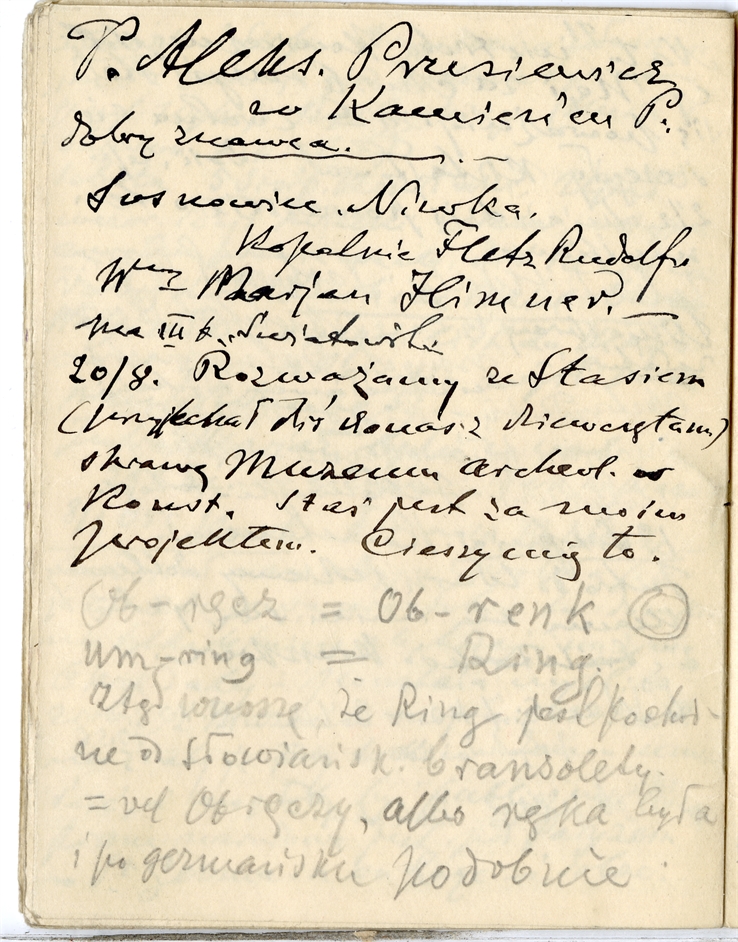 P. Aleks. Prusiewicz
w Kamieńcu P.
dobry znawca.
Sosnowiec. Niwka.
Kopalnia Fletz Rudolfs
Marjan Himner.
na III k.
20/8. Rozważamy ze Stasiem
(przyjechał dziś do nas z
sprawę Muzeum archeol. w
Konst. Staś jest za moim
projektem. Cieszy mię to.
Ob-ręcz = Ob-renk
um-ring = Ring.
Ztąd wnoszę, że Ring jest pochod-
ne od Słowiańsk. bransolety.
= od Obręczy, albo ręka była
i po germańsku podobnie.